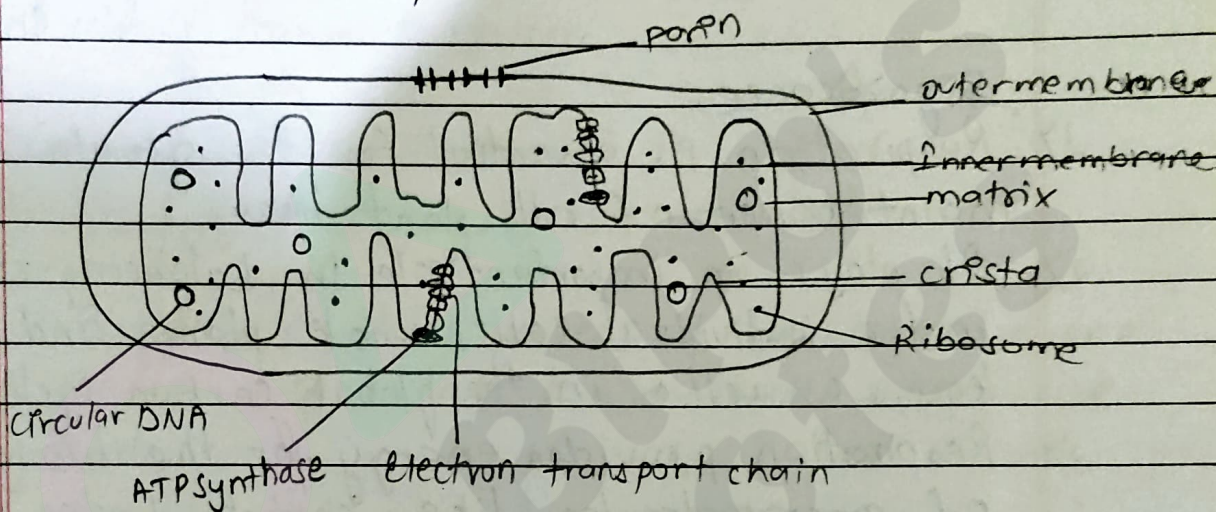 porin
outermembrane
Innermembrane
matrix
crista
Ribosome
circular DNA
ATPsynthase
Electron transport chain